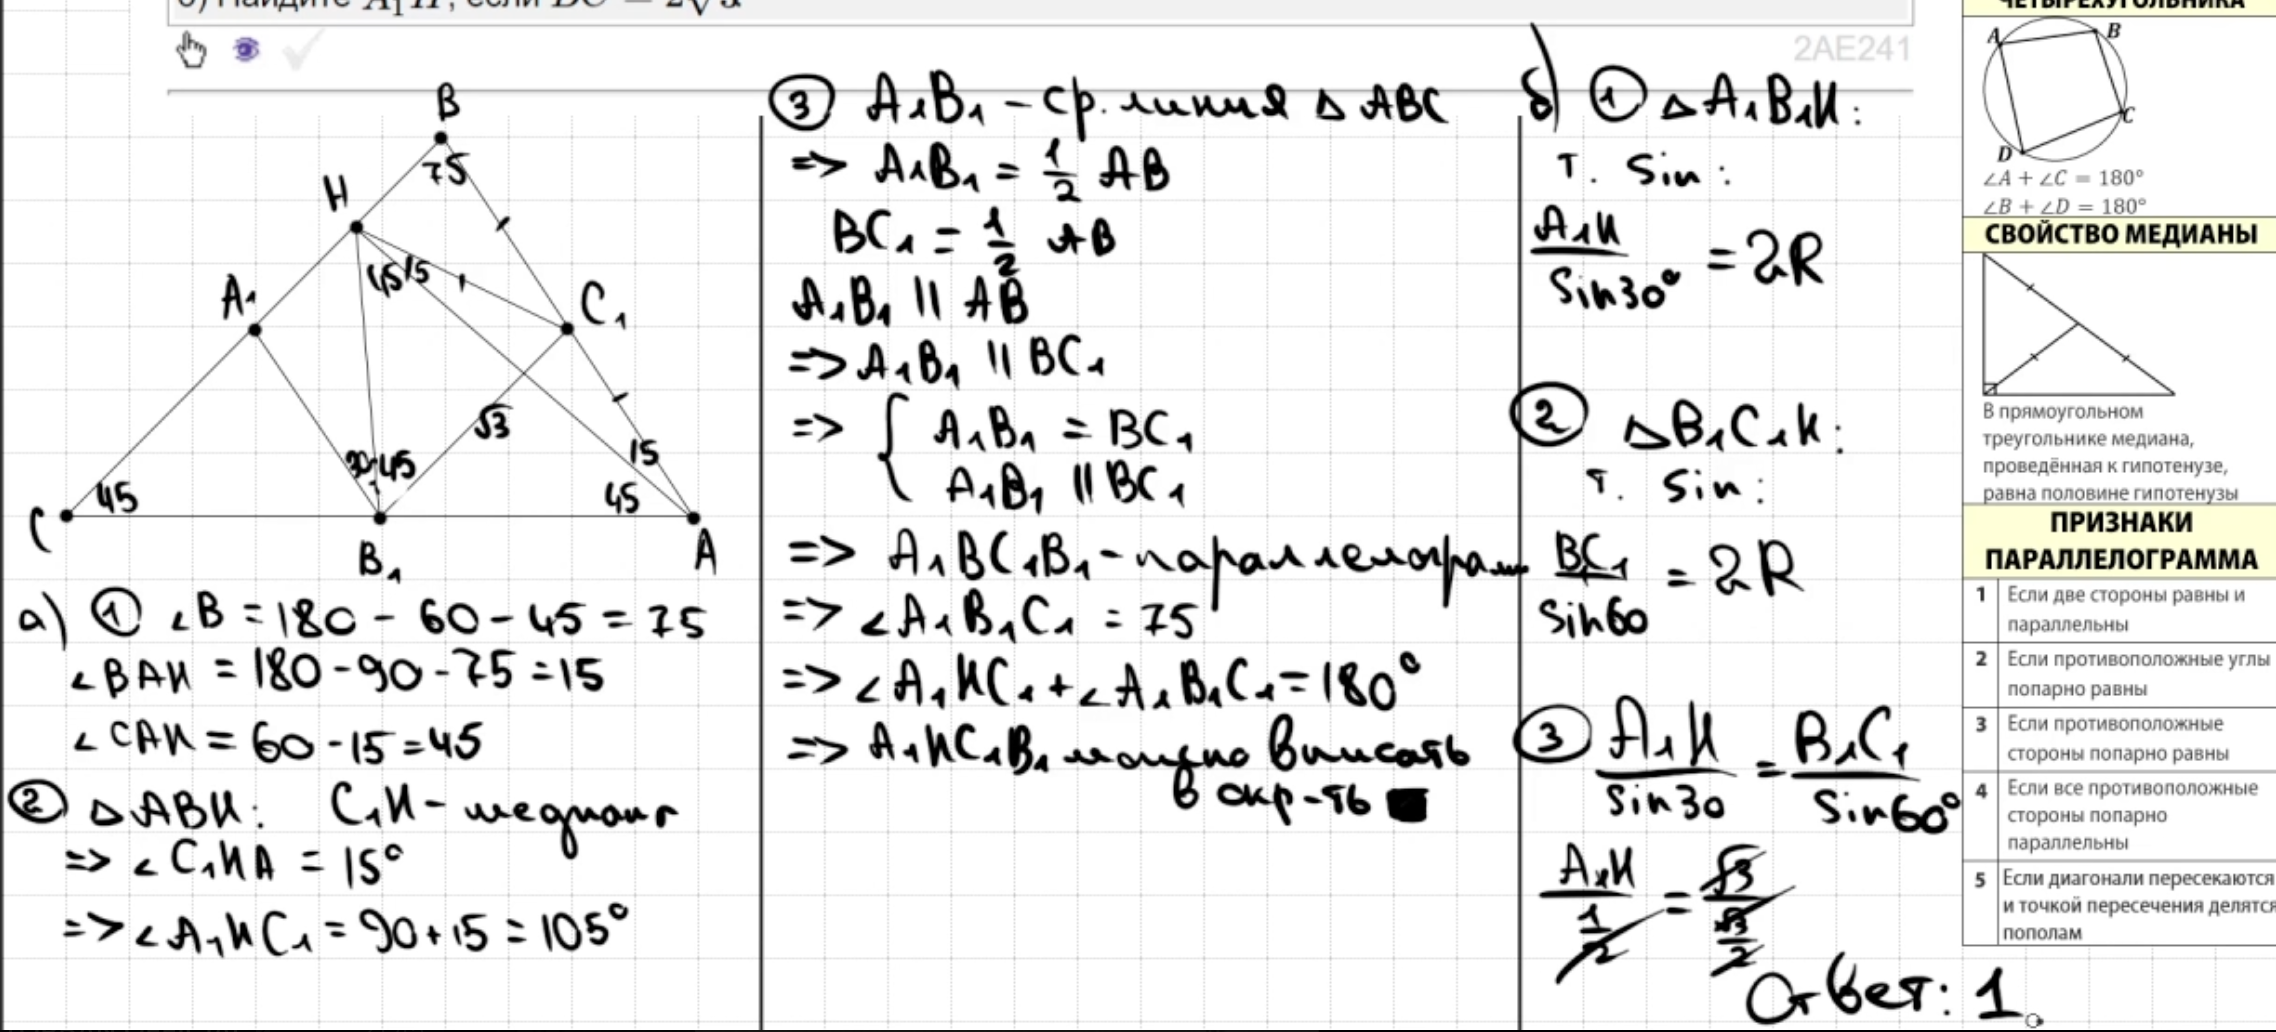 б) Найдите A₁H, если BC = 2√3
2AE241
B
75
H
45 15
A₁
C₁
√3
30 45
15
45
45
C
B₁
A
а) ① ∠B = 180 - 60 - 45 = 75
∠BAH = 180 - 90 - 75 = 15
∠CAH = 60 - 15 = 45
② △ABH: C₁H - медиана
=> ∠C₁HA = 15°
=> ∠A₁HC₁ = 90 + 15 = 105°
③ A₁B₁ - ср. линия △ ABC
=> A₁B₁ = 1/2 AB
BC₁ = 1/2 AB
A₁B₁ || AB
=> A₁B₁ || BC₁
=> { A₁B₁ = BC₁
A₁B₁ || BC₁
=> A₁BC₁B₁ - параллелограмм
=> ∠A₁B₁C₁ = 75
=> ∠A₁HC₁ + ∠A₁B₁C₁ = 180°
=> A₁HC₁B₁ можно вписать
в окр-ть ■
б) ① △A₁B₁H:
т. sin:
A₁H / sin30° = 2R
② △B₁C₁H:
т. sin:
BC₁ / sin60 = 2R
③ A₁H / sin30 = B₁C₁ / sin60°
A₁H / (1/2) = √3 / (√3/2)
Ответ: 1.
ЧЕТЫРЕХУГОЛЬНИКА
A
B
C
D
∠A + ∠C = 180°
∠B + ∠D = 180°
СВОЙСТВО МЕДИАНЫ
В прямоугольном
треугольнике медиана,
проведённая к гипотенузе,
равна половине гипотенузы
ПРИЗНАКИ
ПАРАЛЛЕЛОГРАММА
1 Если две стороны равны и
параллельны
2 Если противоположные углы
попарно равны
3 Если противоположные
стороны попарно равны
4 Если все противоположные
стороны попарно
параллельны
5 Если диагонали пересекаются
и точкой пересечения делятся
пополам